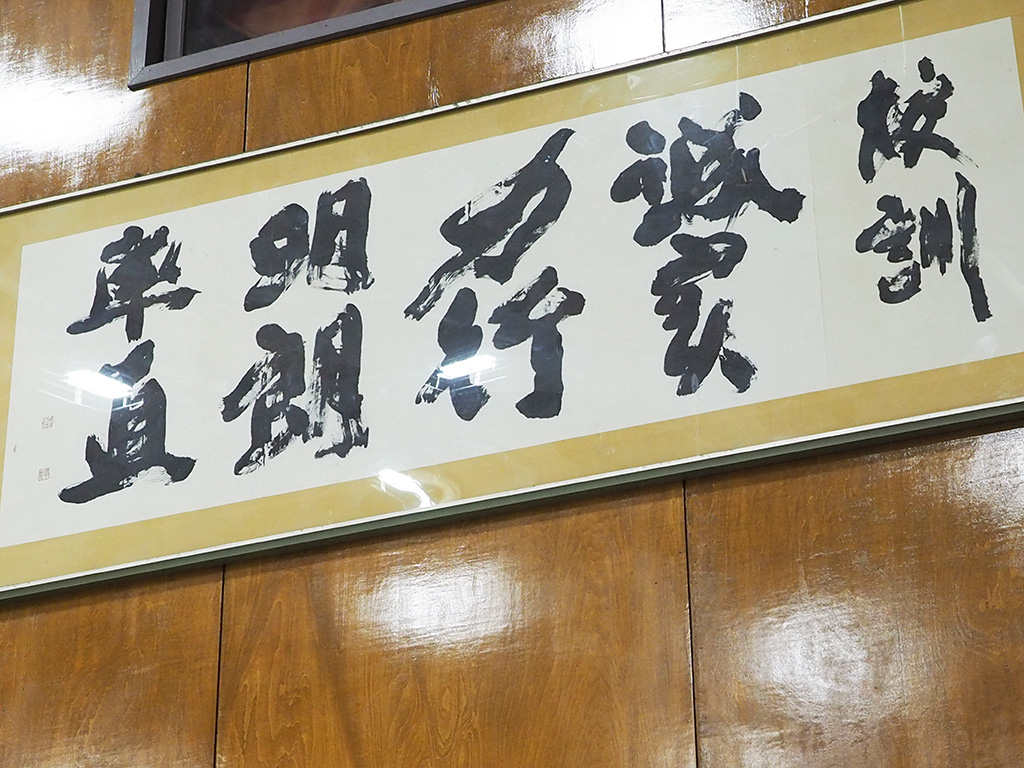 校訓
誠実
力行
明朗
率直